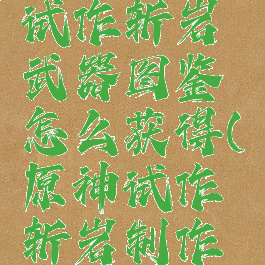 试作斩岩
武器图鉴
怎么获得(
原神试作
斩岩制作